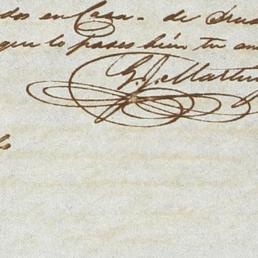 dos en Casa - de
que lo pases bién, tu
G. J. Martin